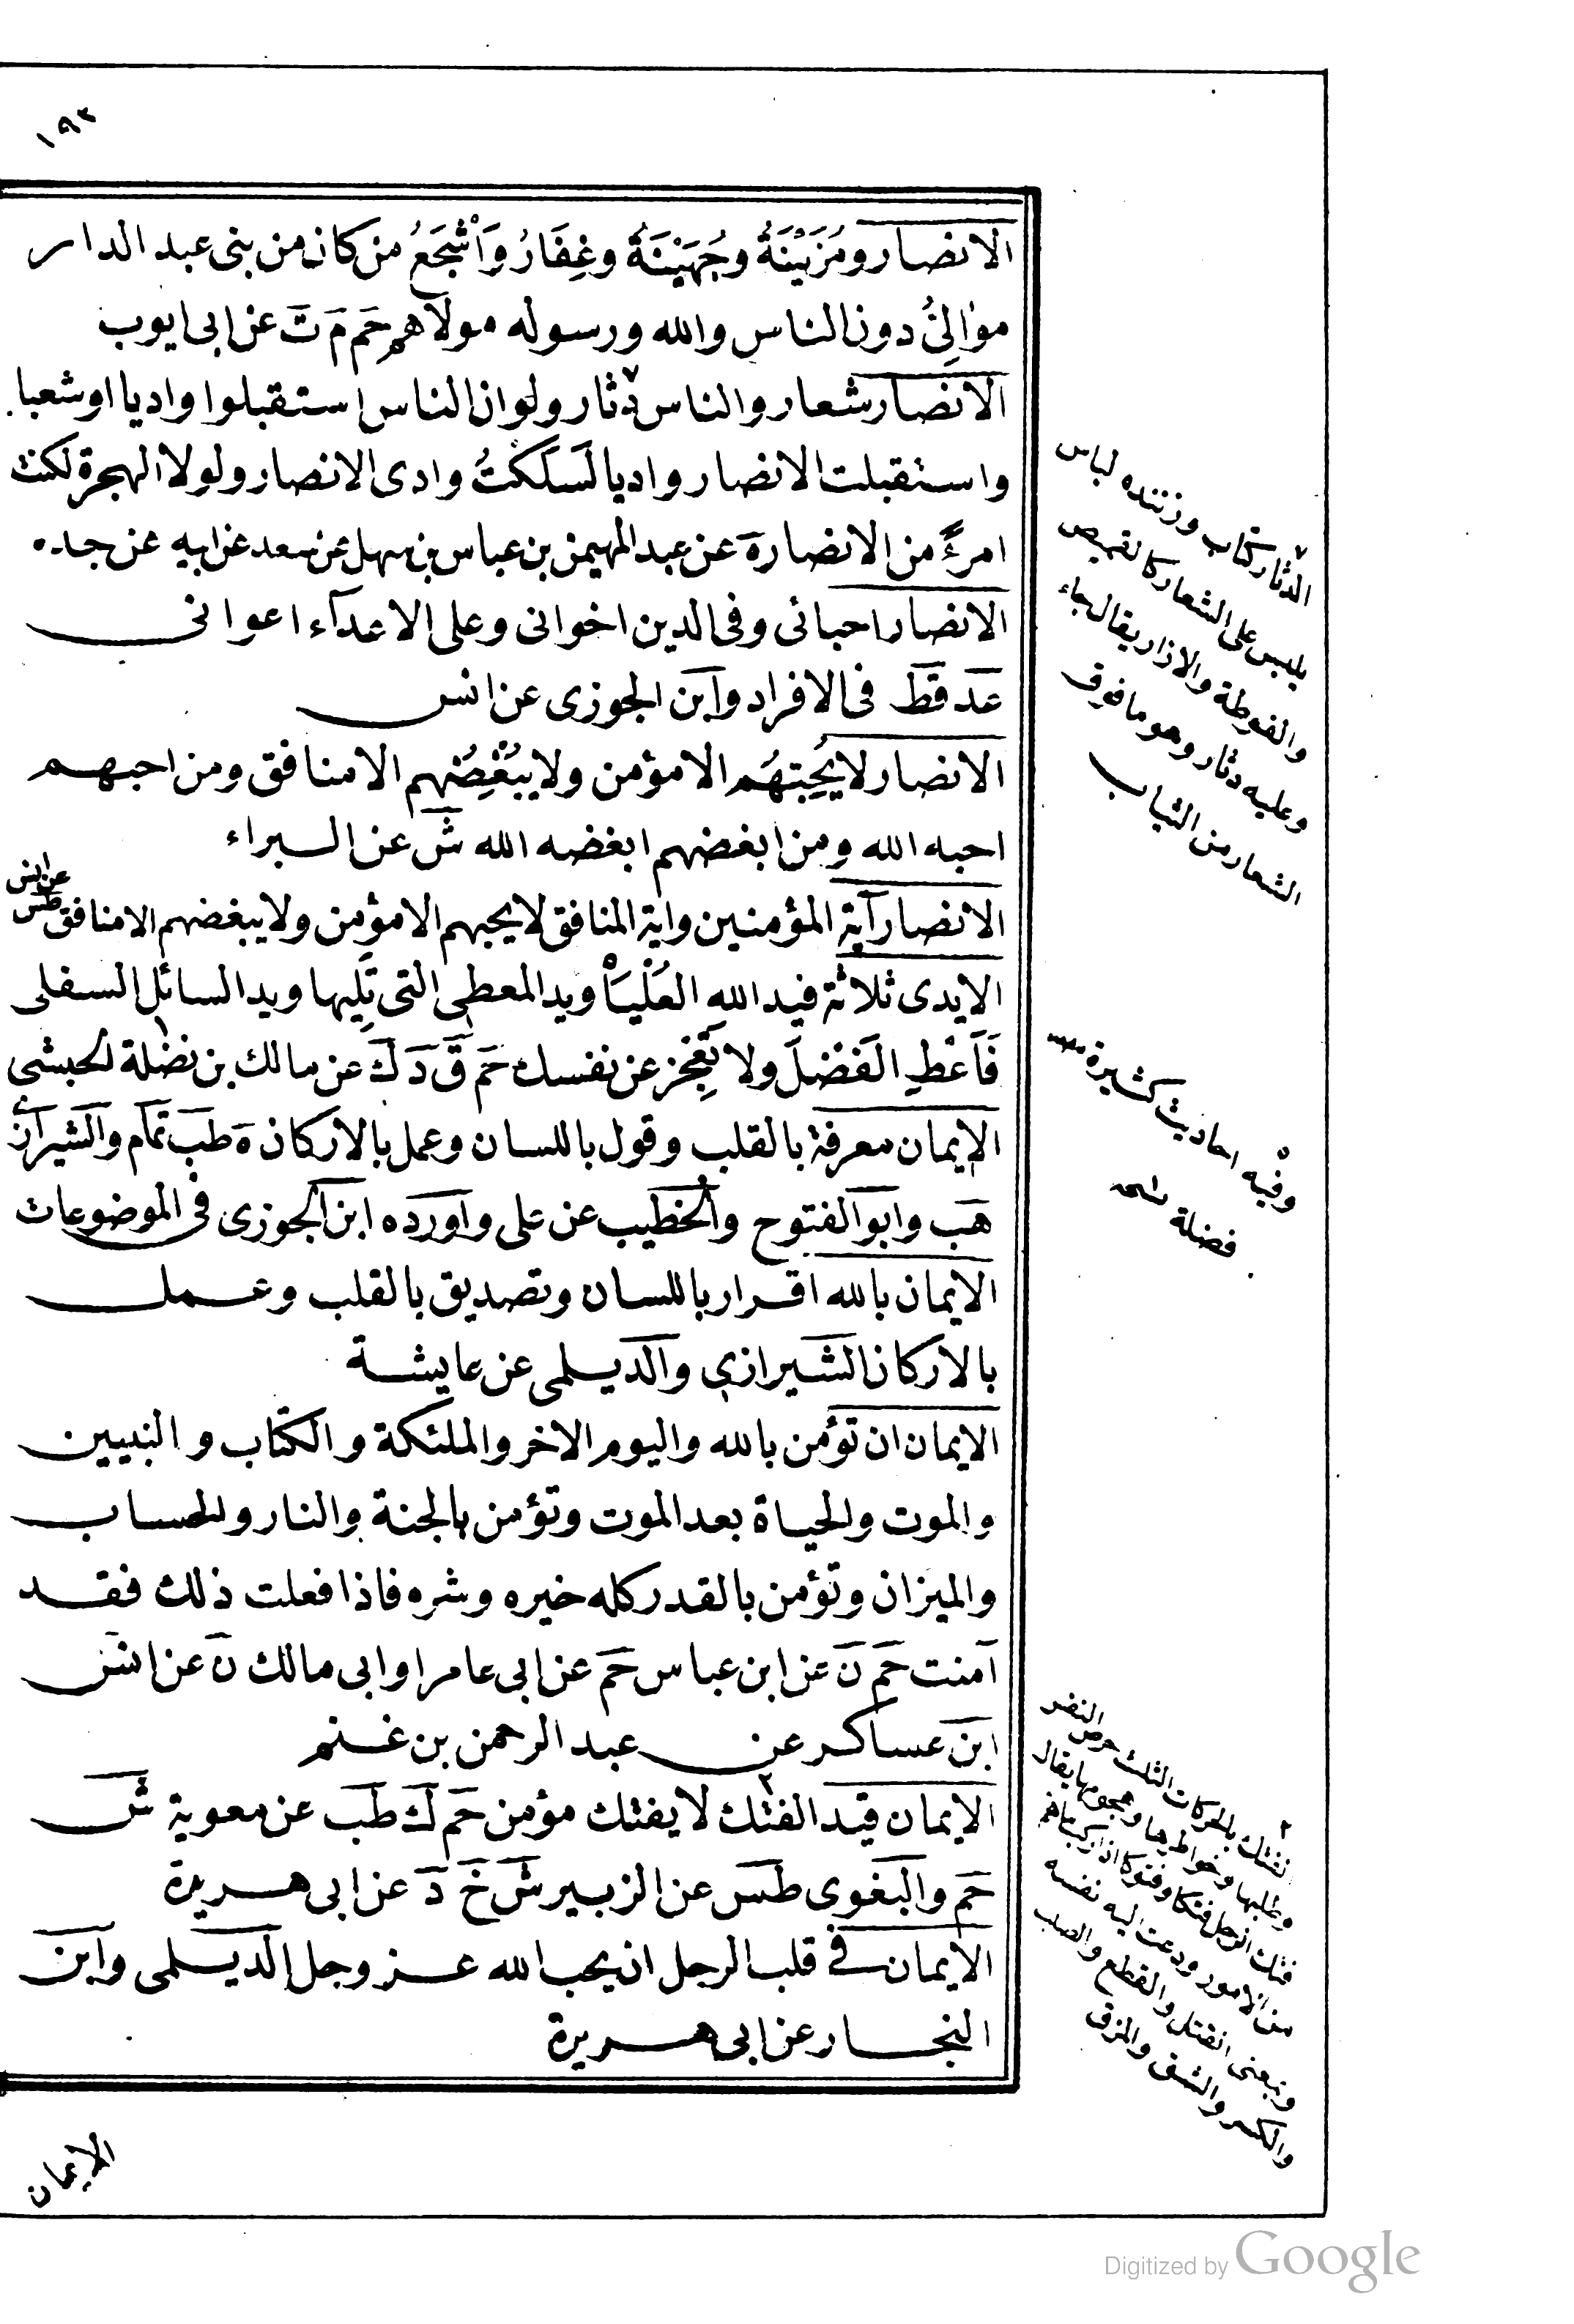 ١٩٣
الانصار ومُزَيْنَةُ وجُهَيْنَةُ وغِفَارُ وَاَشْجَعُ من كان من بنى عبد الدار
موٰالِىَّ دون الناس والله ورسوله مولاهم حَم مَ تَ عن ابى ايوب
الانصار شعار والناس دثار ولو ان الناس استقبلوا واديا او شعبا
واستقبلت الانصار واديا لَسَلَكْتُ وادى الانصار ولولا الهجرة لكنت
امرءً من الانصار ه عن عبد المهيمن بن عباس بن سهل عن سعد عن ابيه عن جده
الانصار احبائى وفى الدين اخوانى وعلى الاعدآء اعوانى
عَد قَط فى الافراد وابن الجوزى عن انس
الانصار لا يُحِبُّهُم الا مؤمن ولا يبْغِضُهم الا منافق ومن احبهم
احبه الله ومن ابغضهم ابغضه الله شَ عن البراء
الانصار آية المؤمنين واية المنافق لا يحبهم الا مؤمن ولا يبغضهم الا منافق طس عن انس
الايدى ثلاثة فيد الله العُلْيَا ويد المعطى التى تَلِيها ويد السائل السفلى
فَاَعْطِ الفَضْلَ ولا تَعْجِز عن نفسك حَم قَ دَ كَ عن مالك بن نضلة الحبشى
الايمان معرفة بالقلب وقول باللسان وعمل بالاركان ه طَب تمام والشيرازى
هَب وابو الفتوح والخطيب عن على واورده ابن الجوزى فى الموضوعات
الايمان بالله اقرار باللسان وتصديق بالقلب وعمل
بالاركان الشيرازى والديلمى عن عايشة
الايمان ان تؤمن بالله واليوم الاخر والملئكة والكتاب والنبيين
والموت والحياة بعد الموت وتؤمن بالجنة والنار والحساب
والميزان وتؤمن بالقدر كله خيره وشره فاذا فعلت ذلك فقد
آمنت حَم نَ عن ابن عباس حَم عن ابى عامر او ابى مالك نَ عن انس
ابن عساكر عن عبد الرحمن بن غنم
الايمان قيد الفتك لا يفتك مؤمن حَم كَ طَب عن معوية شَ
حَم والبغوى طَس عن الزبير شَ خَ دَ عن ابى هريرة
الايمان فى قلب الرجل ان يحب الله عز وجل الديلمى وابن
النجار عن ابى هريرة
الايمان
الدثار كتاب وزننده لباس
يلبس على الشعار كالقميص
والفوطة والازار يقال جاء
وعليه دثار وهو ما فوق
الشعار من الثياب
وفيه احاديث كثيرة
فضلة
فتك بالحركات الثلث حرص النفس
فتك الرجل فتكا وفتوكا اذا
من الامور ودعت اليه نفسه
وبمعنى القتل والقطع
والكسر والشق والمزق
Digitized by Google